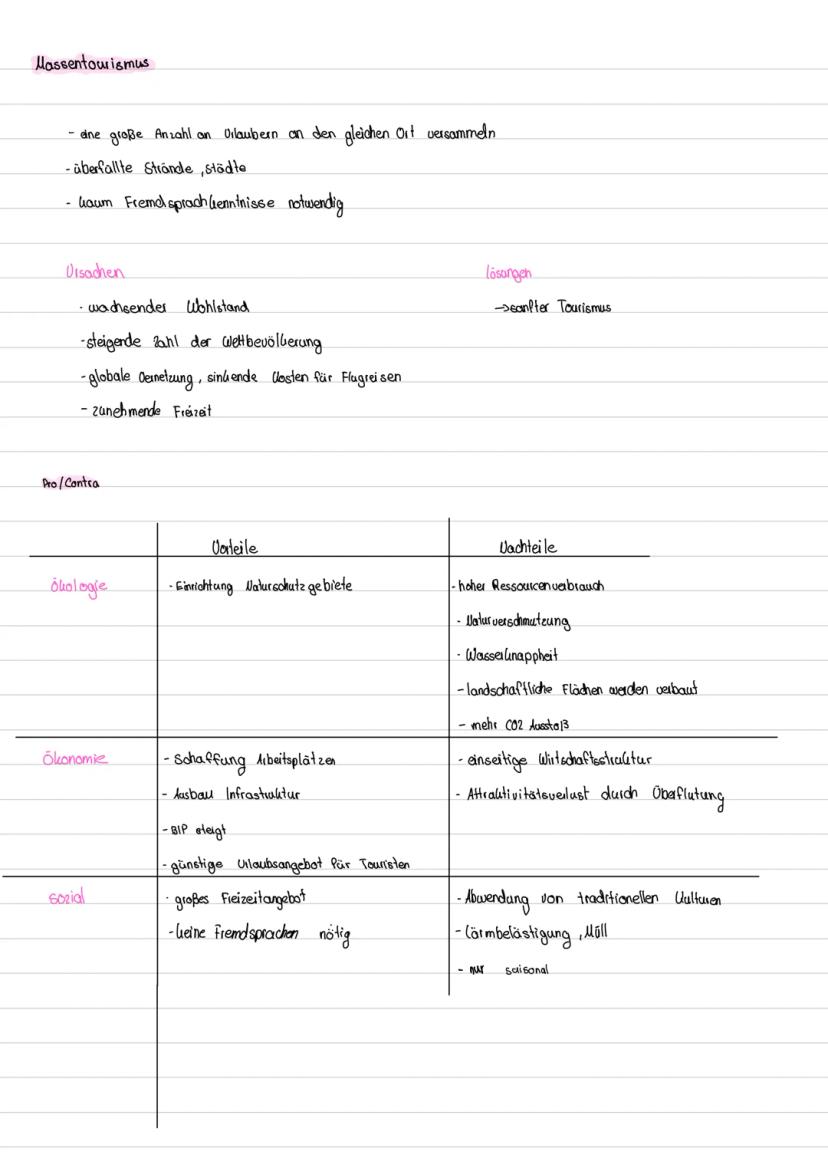 Massentourismus
- eine große Anzahl an Urlaubern an den gleichen Ort versammeln
- überfüllte Strände, städte
- kaum Fremdsprachkenntnisse notwendig
Ursachen
lösungen
- wachsender Wohlstand
→ sanfter Tourismus
- steigende Zahl der Weltbevölkerung
- globale Vernetzung, sinkende Kosten für Flugreisen
- zunehmende Freizeit
Pro/Contra
Vorteile
Nachteile
Ökologie
- Einrichtung Naturschutzgebiete
- hoher Ressourcenverbrauch
- Naturverschmutzung
- Wasserknappheit
- landschaftliche Flächen werden verbaut
- mehr CO2 Ausstoß
Ökonomie
- Schaffung Arbeitsplätzen
- einseitige Wirtschaftsstruktur
- Ausbau Infrastruktur
- Attraktivitätsverlust durch Überflutung
- BIP steigt
- günstige Urlaubsangebot für Touristen
sozial
- großes Freizeitangebot
- Abwendung von traditionellen Kulturen
- keine Fremdsprachen nötig
- Lärmbelästigung, Müll
- nur saisonal